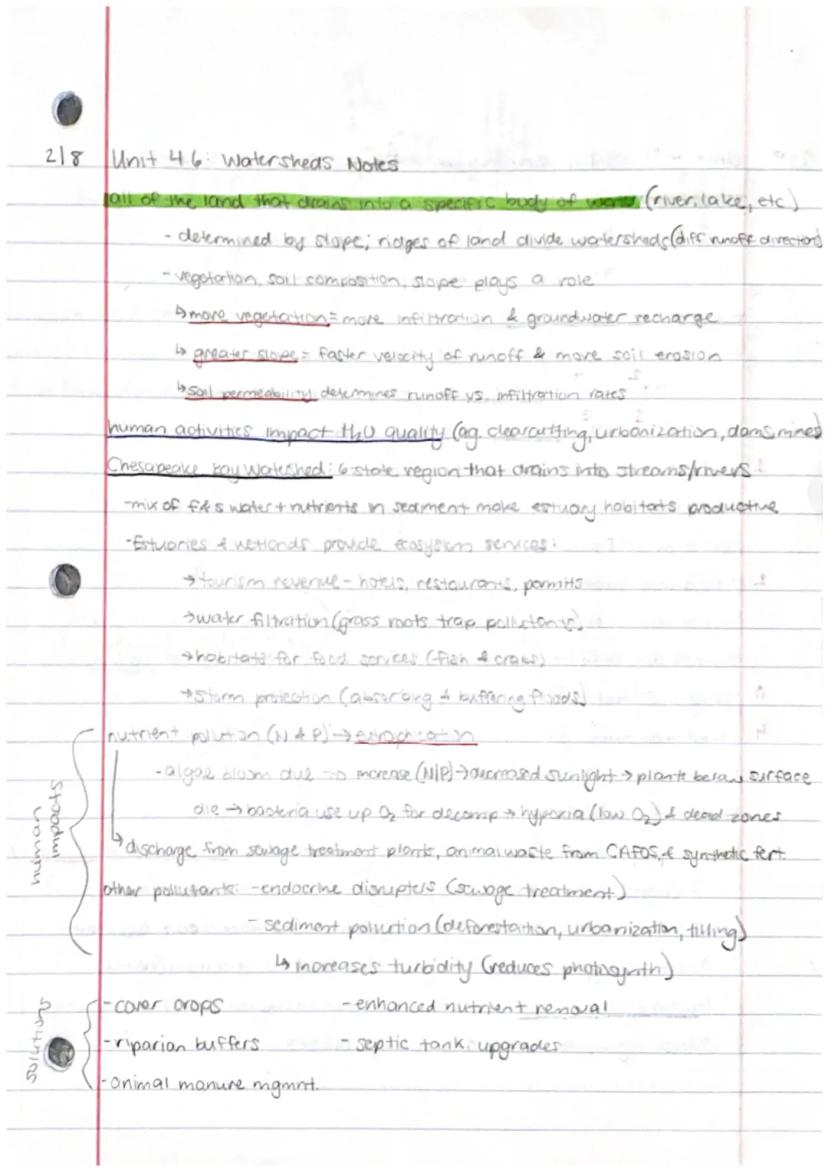 2/8 Unit 4.6: Watersheds Notes
all of the land that drains into a specific body of water (river, lake, etc)
- determined by slope; ridges of land divide watersheds (diff runoff direction)
- vegetation, soil composition, slope plays a role
↳ more vegetation = more infiltration & groundwater recharge
↳ greater slope = faster velocity of runoff & more soil erosion
↳ soil permeability determines runoff vs. infiltration rates
human activities impact H₂O quality (ag. clearcutting, urbanization, dams, mines)
Chesapeake Bay Watershed: 6 state region that drains into streams/rivers
-mix of f & s water + nutrients in sediment make estuary habitats productive
-Estuaries & wetlands provide ecosystem services:
→ tourism revenue - hotels, restaurants, permits
→ water filtration (grass roots trap pollutants)
→ habitats for food services (fish & crabs)
→ storm protection (absorbing & buffering floods)
human impacts
nutrient pollution (N & P) → eutrophication
-algae bloom due to increase (N/P) → decreased sunlight → plants below surface
die → bacteria use up O₂ for decomp → hypoxia (low O₂) & dead zones
↳ discharge from sewage treatment plants, animal waste from CAFOS, & synthetic fert.
other pollutants: - endocrine disrupters (sewage treatment)
- sediment pollution (deforestation, urbanization, tilling)
↳ increases turbidity (reduces photosynth)
solutions
-cover crops -enhanced nutrient removal
-riparian buffers - septic tank upgrades
-animal manure mgmnt.